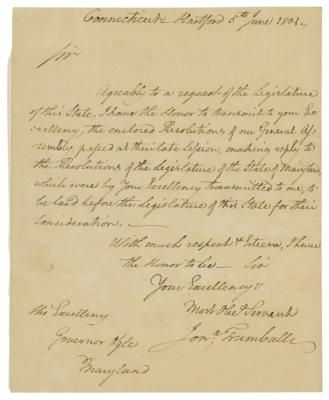 Connecticut Hartford 5th June 1801.
Sir
Agreably to a request of the Legislature
of this State, I have the Honor to transmit to your Ex-
cellency, the enclosed Resolutions of our General As-
sembly, passed at their late Session, making reply to
the Resolutions of the Legislature of the State of Maryland,
which were by Your Excellency transmitted to me, to
be laid before the Legislature of this State for their
Consideration.
With much respect & Esteem, I have
the Honor to be Sir
Your Excellency's
Most Obedt Servant
His Excellency
Jona Trumbull
Governor Ogle
Maryland